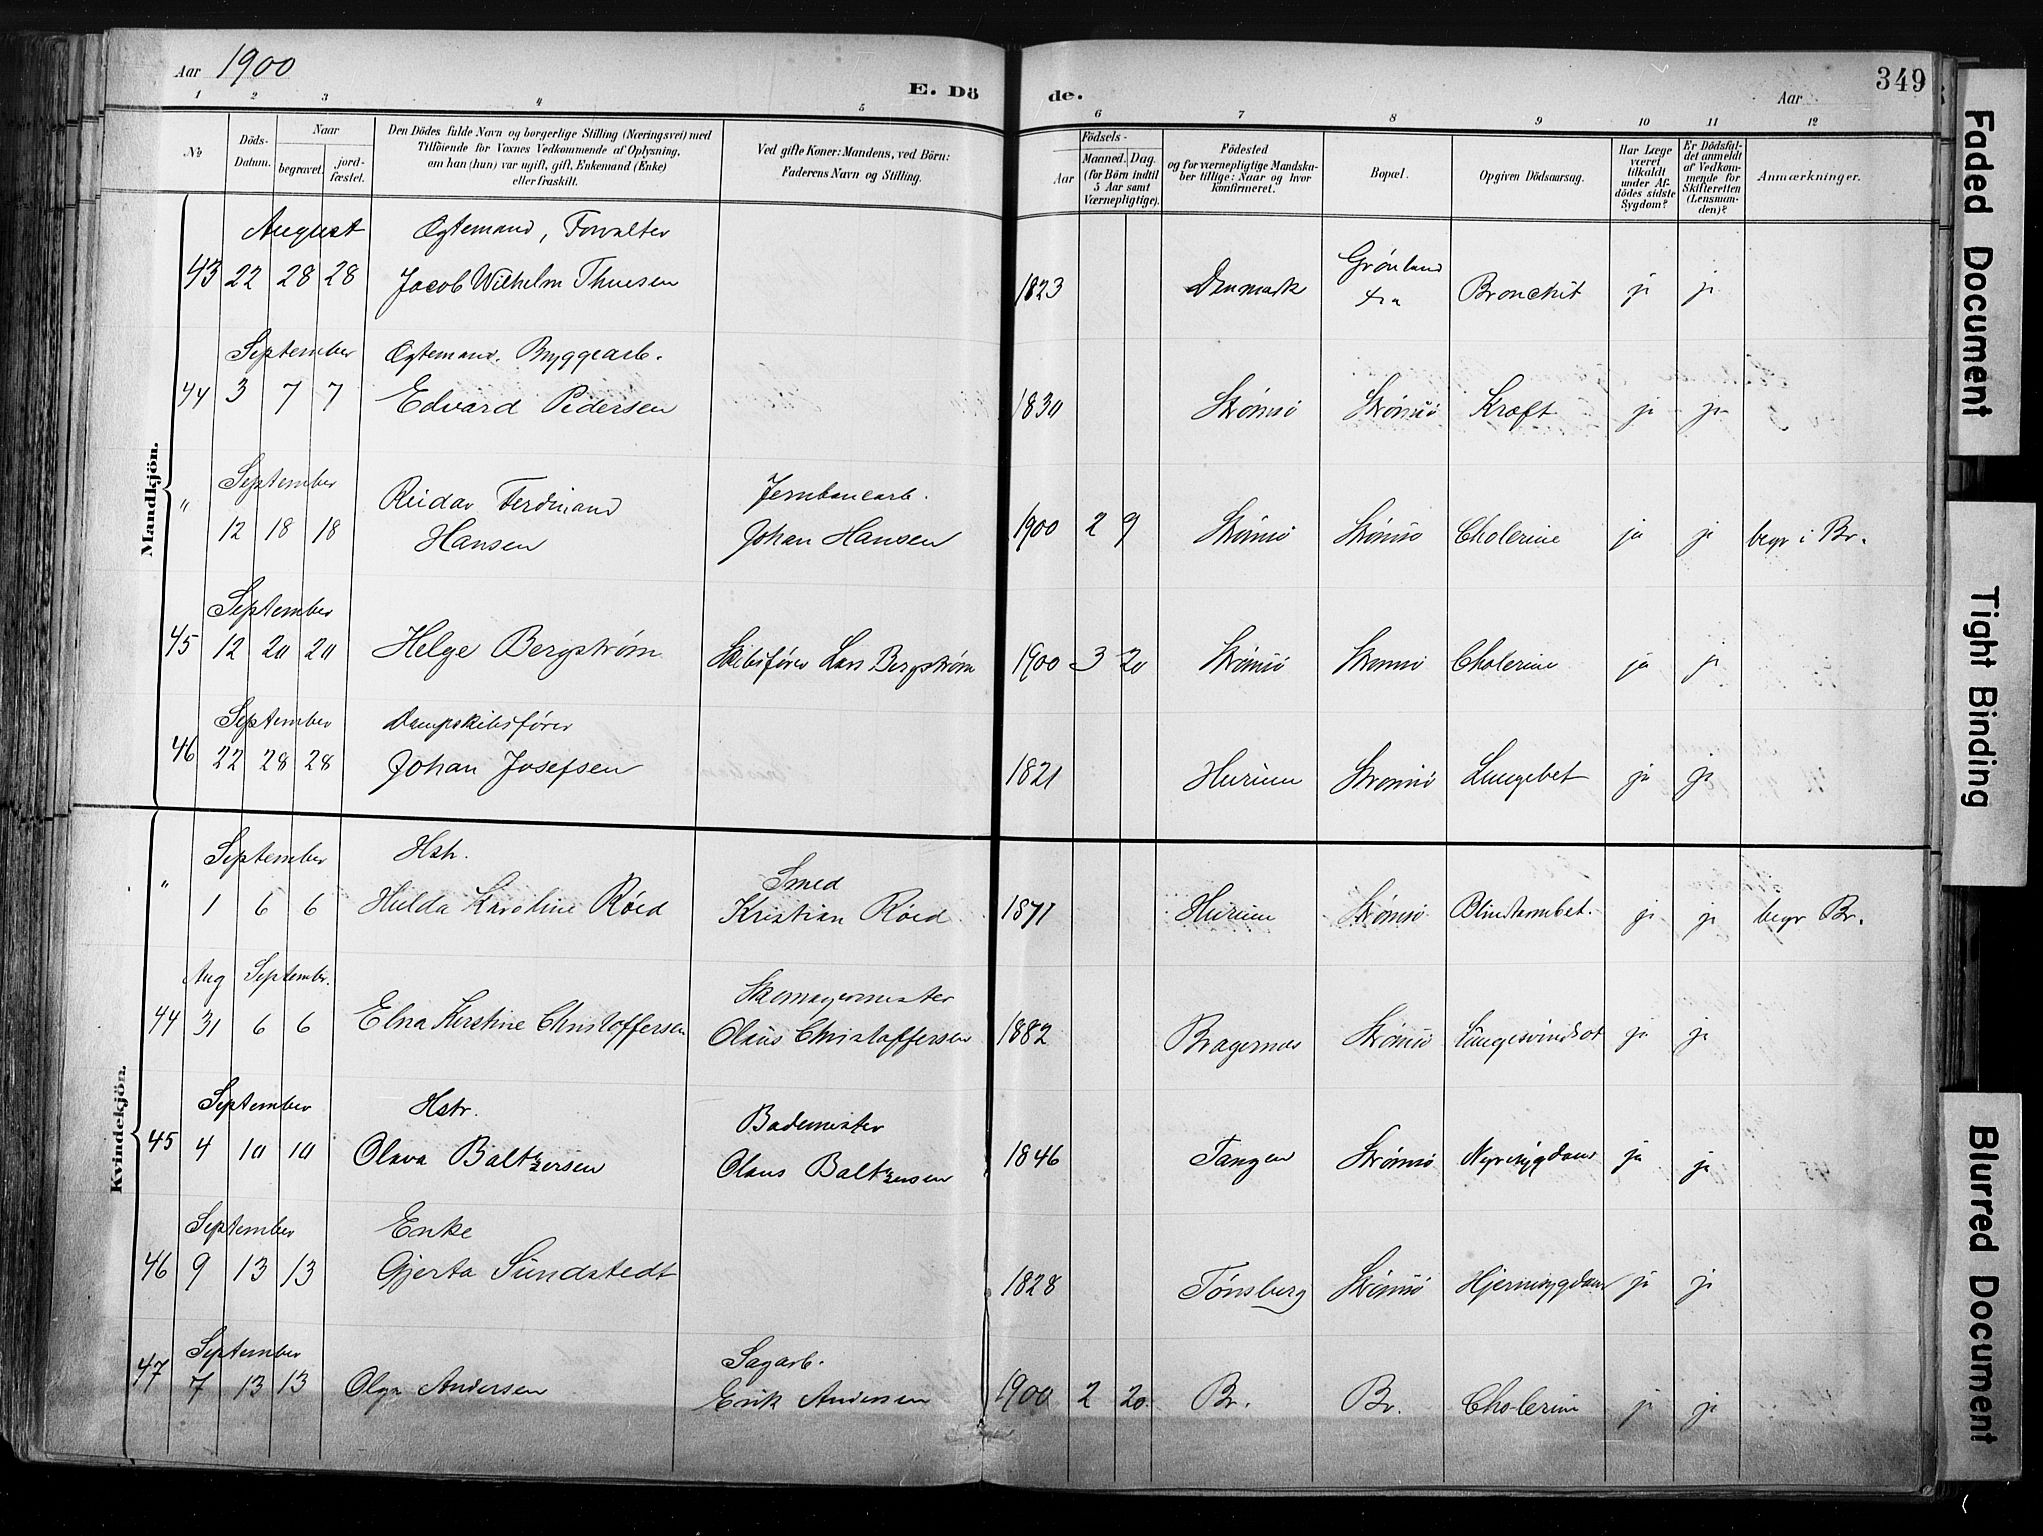 Aar 1900
E. Döde.
Aar
349
1 2 3 4 5 6 7 8 9 10 11 12
No
Döds-Datum.
Naar
begravet.
jord-fæstet.
Den Dödes fulde Navn og borgerlige Stilling (Næringsvei) med
Tilföiende for Voxnes Vedkommende af Oplysning,
om han (hun) var ugift, gift, Enkemand (Enke)
eller fraskilt.
Ved gifte Koner: Mandens, ved Börn:
Faderens Navn og Stilling.
Födsels-
Aar
Maaned. Dag.
(for Börn indtil
5 Aar samt
Værnepligtige).
Födested
og for værnepligtige Mandska-
ber tillige: Naar og hvor
konfirmeret.
Bopæl.
Opgiven Dödsaarsag.
Har Læge
været
tilkaldt
under Af-
dödes sidste
Sygdom?
Er Dödsfal-
det anmeldt
af Vedkom-
mende for
Skifteretten
(Lensman-
den)?
Anmærkninger.
Mandkjön.
August Egtemand, Forvalter
43 22 28 28 Jacob Wilhelm Thuesen 1823 Danmark Grønland Bronchit ja ja
September Egtemand. Byggearb.
44 3 7 7 Edvard Pedersen 1830 Strømsö Strømsö Kræft ja ja
September Reidar Ferdinand Jernbanearb.
" 12 18 18 Hansen Johan Hansen 1900 2 9 Strømsö Strømsö Cholerine ja ja begr i Br.
September
45 12 20 20 Helge Bergstrøm Skibsfører Lars Bergstrøm 1900 3 20 Strømsö Strømsö Cholerine ja ja
September Dampskibsfører
46 22 28 28 Johan Josefsen 1821 Hurum Strømsö Lungebet ja ja
Kvindekjön.
September Hstr. Smed
" 1 6 6 Hulda Karoline Röed Kristian Röed 1871 Hurum Strømsö Blindtarmbet. ja ja begr Br.
Aug September. Skomagermester
44 31 6 6 Elna Kirstine Christoffersen Olaus Christoffersen 1882 Bragernæs Strømsö Lungesvindsot ja ja
September Hstr. Bademester
45 4 10 10 Olava Baltzersen Olaus Baltzersen 1846 Tangen Strømsö Nyresygdom ja ja
September Enke
46 9 13 13 Gjerta Sundstedt 1828 Tønsberg Strømsö Hjernesygdom ja ja
September Sagarb.
47 7 13 13 Olga Andersen Erik Andersen 1900 2 20 Br. Br. Cholerine ja ja
Faded Document
Tight Binding
Blurred Document